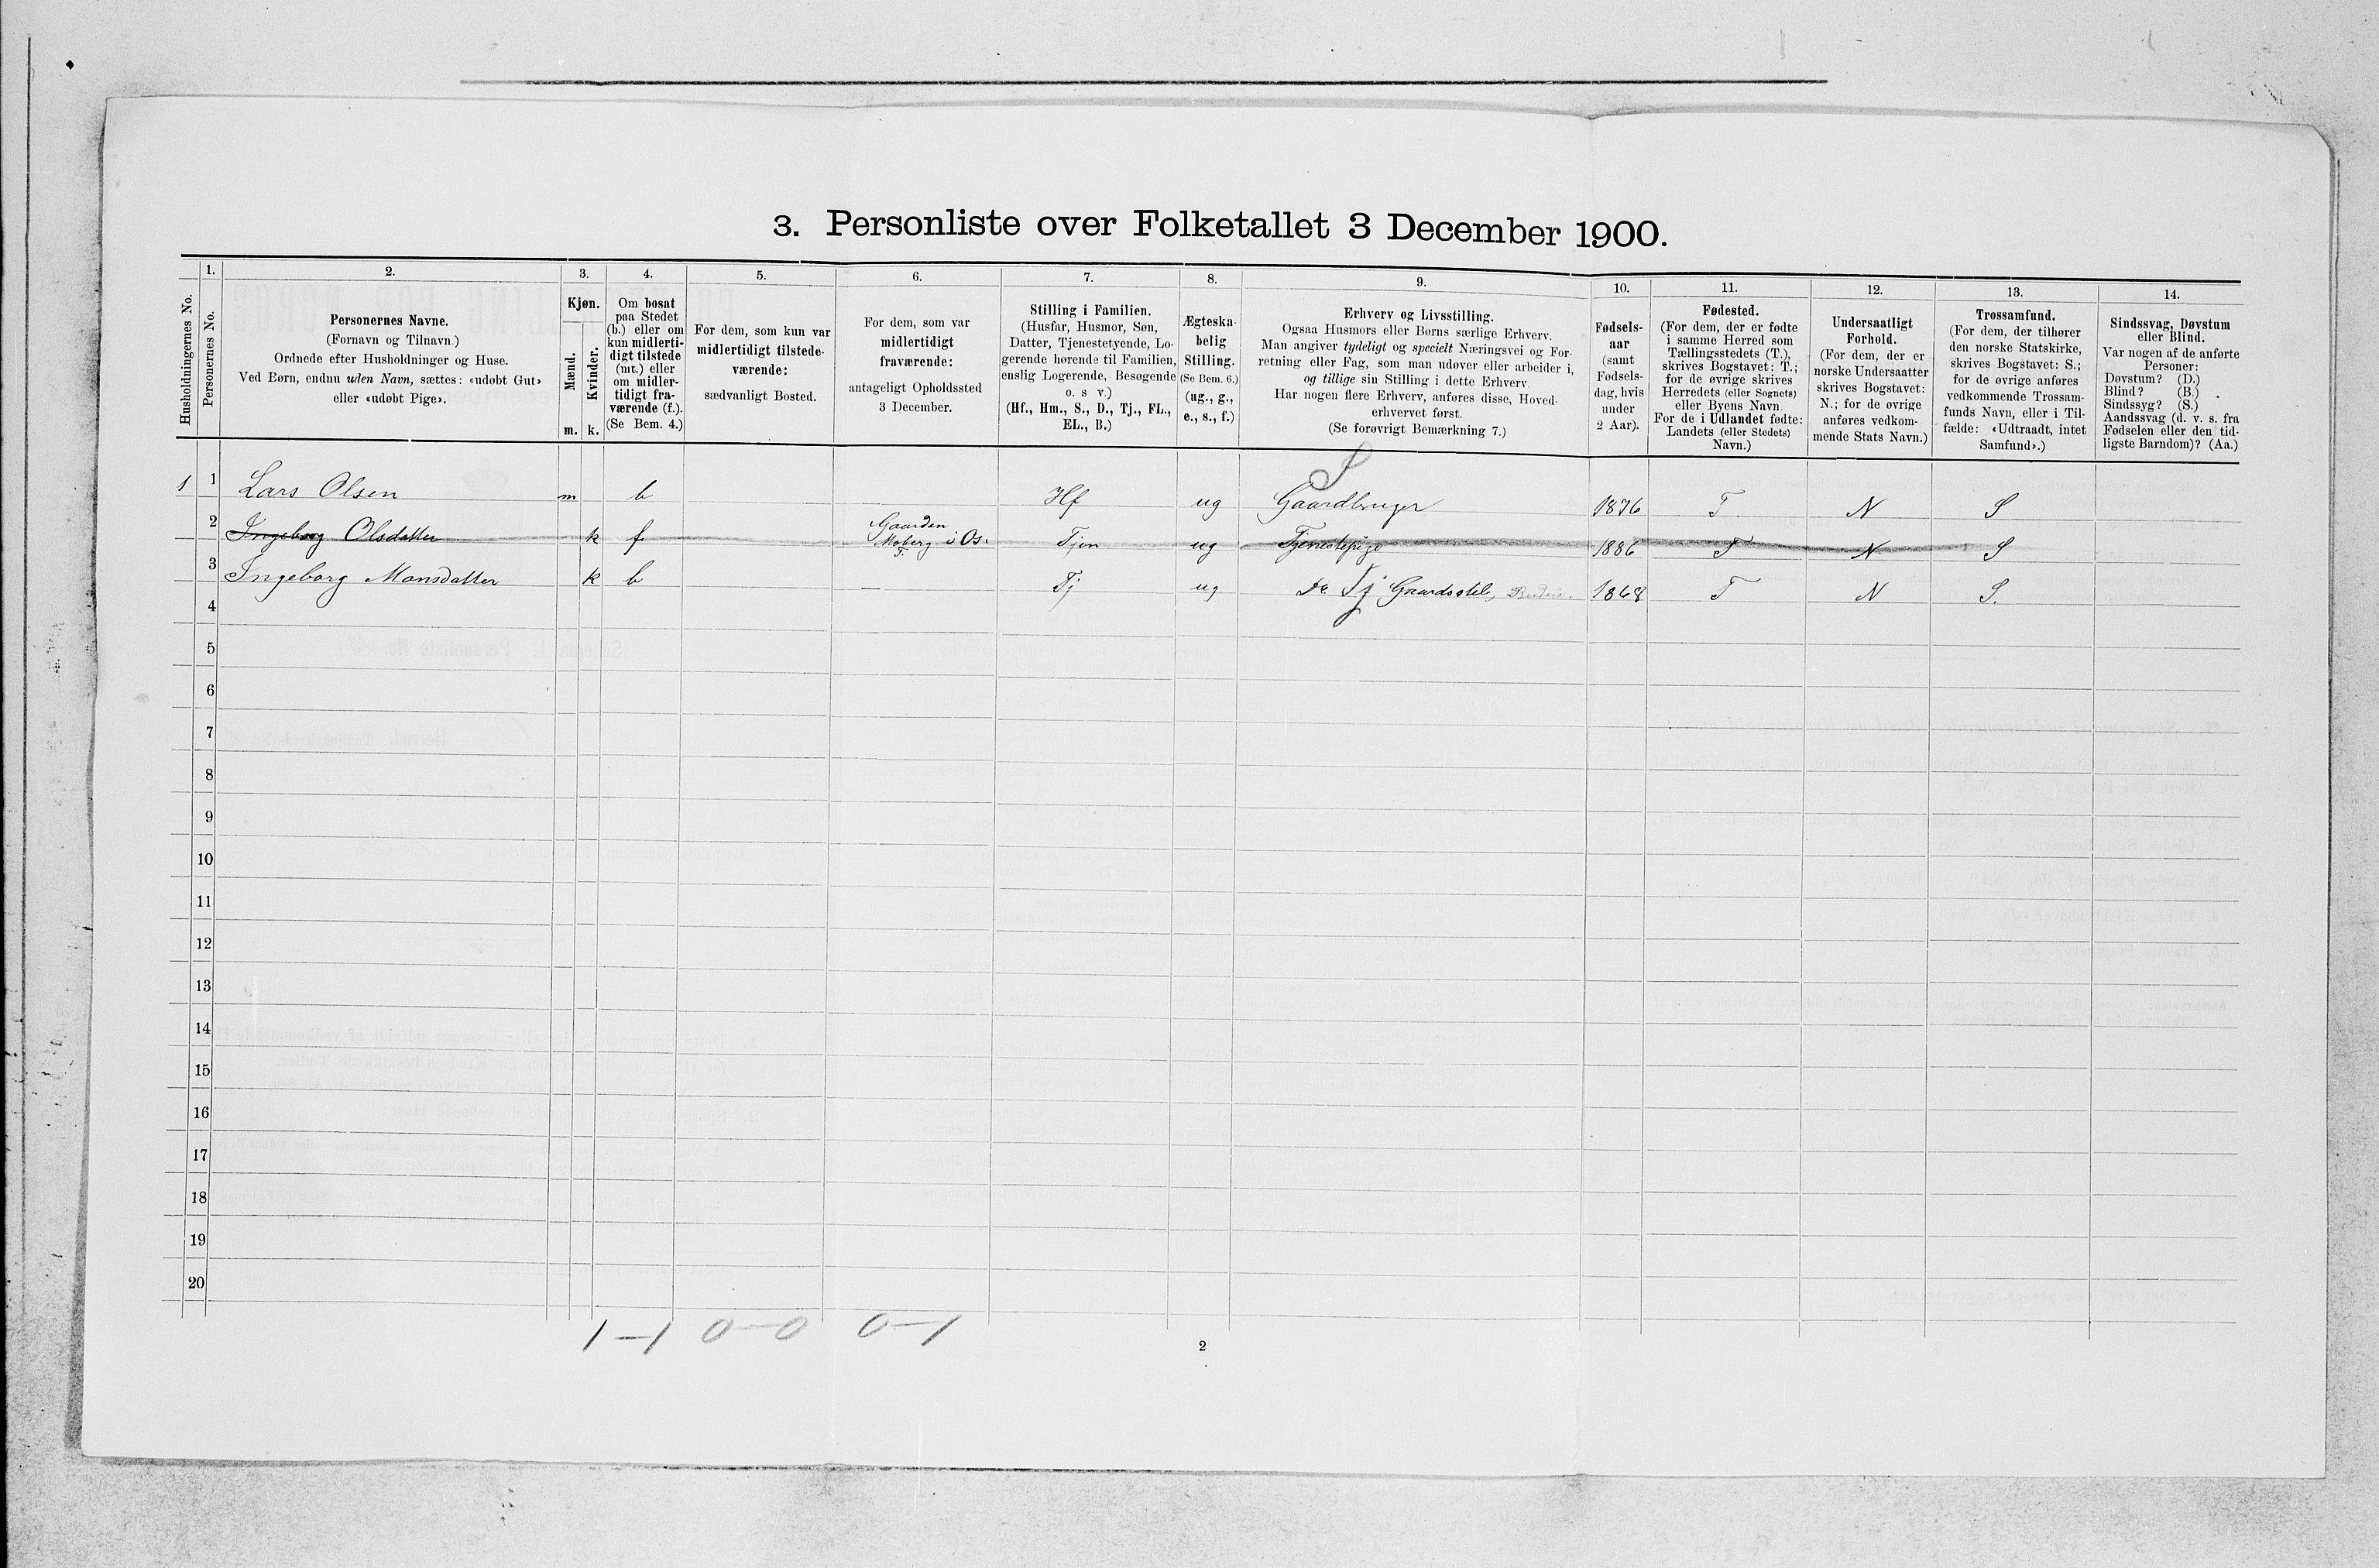 3. Personliste over Folketallet 3 December 1900.
Husholdningernes No.
1.
Personernes No.
2.
Personernes Navne.
(Fornavn og Tilnavn.)
Ordnede efter Husholdninger og Huse.
Ved Børn, endnu uden Navn, sættes: «udøbt Gut»
eller «udøbt Pige».
3.
Kjøn.
Mænd.
Kvinder.
m.
k.
4.
Om bosat
paa Stedet
(b.) eller om
kun midlerti-
digt tilstede
(mt.) eller
om midler-
tidigt fra-
værende (f.).
(Se Bem. 4.)
5.
For dem, som kun var
midlertidigt tilstede-
værende:
sædvanligt Bosted.
6.
For dem, som var
midlertidigt
fraværende:
antageligt Opholdssted
3 December.
7.
Stilling i Familien.
(Husfar, Husmor, Søn,
Datter, Tjenestetyende, Lo-
gerende hørende til Familien,
enslig Logerende, Besøgende
o. s v.)
(Hf., Hm., S., D., Tj., FL.,
EL., B.)
8.
Ægteska-
belig
Stilling.
(Se Bem. 6.)
(ug., g.,
e., s., f.)
9.
Erhverv og Livsstilling.
Ogsaa Husmors eller Børns særlige Erhverv.
Man angiver tydeligt og specielt Næringsvei og For-
retning eller Fag, som man udøver eller arbeider i,
og tillige sin Stilling i dette Erhverv.
Har nogen flere Erhverv, anføres disse, Hoved-
erhvervet først.
(Se forøvrigt Bemærkning 7.)
10.
Fødsels-
aar
(samt
Fødsels-
dag, hvis
under
2 Aar).
11.
Fødested.
(For dem, der er fødte
i samme Herred som
Tællingsstedets (T.),
skrives Bogstavet: T.;
for de øvrige skrives
Herredets (eller Sognets)
eller Byens Navn.
For de i Udlandet fødte:
Landets (eller Stedets)
Navn.)
12.
Undersaatligt
Forhold.
(For dem, der er
norske Undersaatter
skrives Bogstavet:
N.; for de øvrige
anføres vedkom-
mende Stats Navn.)
13.
Trossamfund.
(For dem, der tilhører
den norske Statskirke,
skrives Bogstavet: S.;
for de øvrige anføres
vedkommende Trossam-
funds Navn, eller i Til-
fælde: «Udtraadt, intet
Samfund».)
14.
Sindssvag, Døvstum
eller Blind.
Var nogen af de anførte
Personer:
Døvstum? (D.)
Blind? (B.)
Sindssyg? (S.)
Aandssvag (d. v. s. fra
Fødselen eller den tid-
ligste Barndom)? (Aa.)
S
1 1 Lars Olsen m b Hf ug Gaardbruger 1876 T N S
2 Ingeborg Olsdatter k f Gaarden Moberg i Os. T. Tjen ug Tjenestepige 1886 T N S
3 Ingeborg Monsdatter k b — Tj ug Tj Gaardsstel, 1868 T N S.
4
5
6
7
8
9
10
11
12
13
14
15
16
17
18
19
20
1–1 0–0 0–1
2